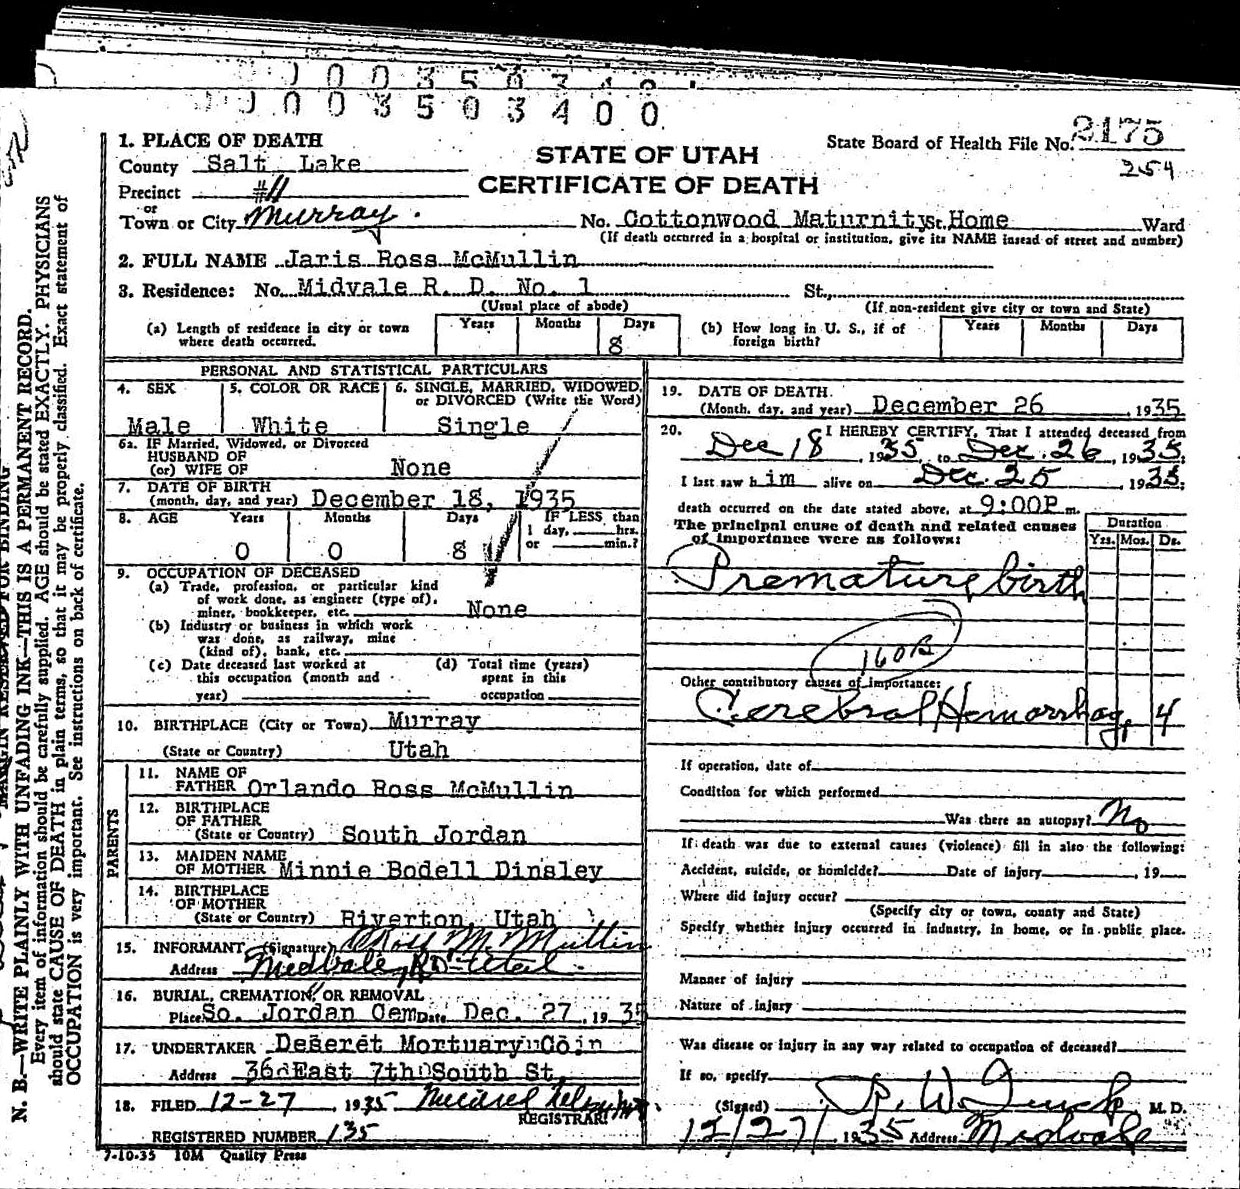 003503400
1. PLACE OF DEATH
County Salt Lake
Precinct #11
or
Town or City Murray.
STATE OF UTAH
CERTIFICATE OF DEATH
State Board of Health File No. 2175
254
No. Cottonwood Maturnity St. Home Ward
(If death occurred in a hospital or institution, give its NAME instead of street and number)
2. FULL NAME Jaris Ross McMullin
3. Residence: No. Midvale R. D. No. 1 St.,
(Usual place of abode) (If non-resident give city or town and State)
(a) Length of residence in city or town where death occurred. Years Months Days 8
(b) How long in U. S., if of foreign birth? Years Months Days
PERSONAL AND STATISTICAL PARTICULARS
4. SEX Male
5. COLOR OR RACE White
6. SINGLE, MARRIED, WIDOWED, or DIVORCED (Write the Word) Single
6a. IF Married, Widowed, or Divorced
HUSBAND OF
(or) WIFE OF None
7. DATE OF BIRTH
(month, day, and year) December 18, 1935
8. AGE Years 0 Months 0 Days 8 IF LESS than 1 day, hrs. or min.?
9. OCCUPATION OF DECEASED
(a) Trade, profession, or particular kind
of work done, as engineer (type of),
miner, bookkeeper, etc. None
(b) Industry or business in which work
was done, as railway, mine
(kind of), bank, etc.
(c) Date deceased last worked at
this occupation (month and
year)
(d) Total time (years)
spent in this
occupation
10. BIRTHPLACE (City or Town) Murray
(State or Country) Utah
PARENTS
11. NAME OF
FATHER Orlando Ross McMullin
12. BIRTHPLACE
OF FATHER
(State or Country) South Jordan
13. MAIDEN NAME
OF MOTHER Minnie Bodell Dinsley
14. BIRTHPLACE
OF MOTHER
(State or Country) Riverton, Utah
15. INFORMANT (Signature) O Ross McMullin
Address Midvale, RD Utah
16. BURIAL, CREMATION, OR REMOVAL
Place So. Jordan Cem Date Dec. 27, 1935
17. UNDERTAKER Deseret Mortuary
Address 36 East 7th South St.
18. FILED 12-27 1935
REGISTRAR
REGISTERED NUMBER 135
7-10-35 10M Quality Press
19. DATE OF DEATH.
(Month, day, and year) December 26, 1935
20. I HEREBY CERTIFY, That I attended deceased from
Dec 18, 1935 to Dec. 26, 1935;
I last saw h im alive on Dec. 25, 1935;
death occurred on the date stated above, at 9:00P.m.
The principal cause of death and related causes
of importance were as follows:
Duration
Yrs. Mos. Ds.
Premature birth
160B
Other contributory causes of importance:
Cerebral Hemorrhag, 4
If operation, date of
Condition for which performed
Was there an autopsy? No
If death was due to external causes (violence) fill in also the following:
Accident, suicide, or homicide? Date of injury , 19
Where did injury occur?
(Specify city or town, county and State)
Specify whether injury occurred in industry, in home, or in public place.
Manner of injury
Nature of injury
Was disease or injury in any way related to occupation of deceased?
If so, specify
(Signed) M. D.
12/27/ 1935 Address Midvale
N. B.—WRITE PLAINLY WITH UNFADING INK—THIS IS A PERMANENT RECORD.
Every item of information should be carefully supplied. AGE should be stated EXACTLY. PHYSICIANS
should state CAUSE OF DEATH in plain terms, so that it may be properly classified. Exact statement of
OCCUPATION is very important. See instructions on back of certificate.